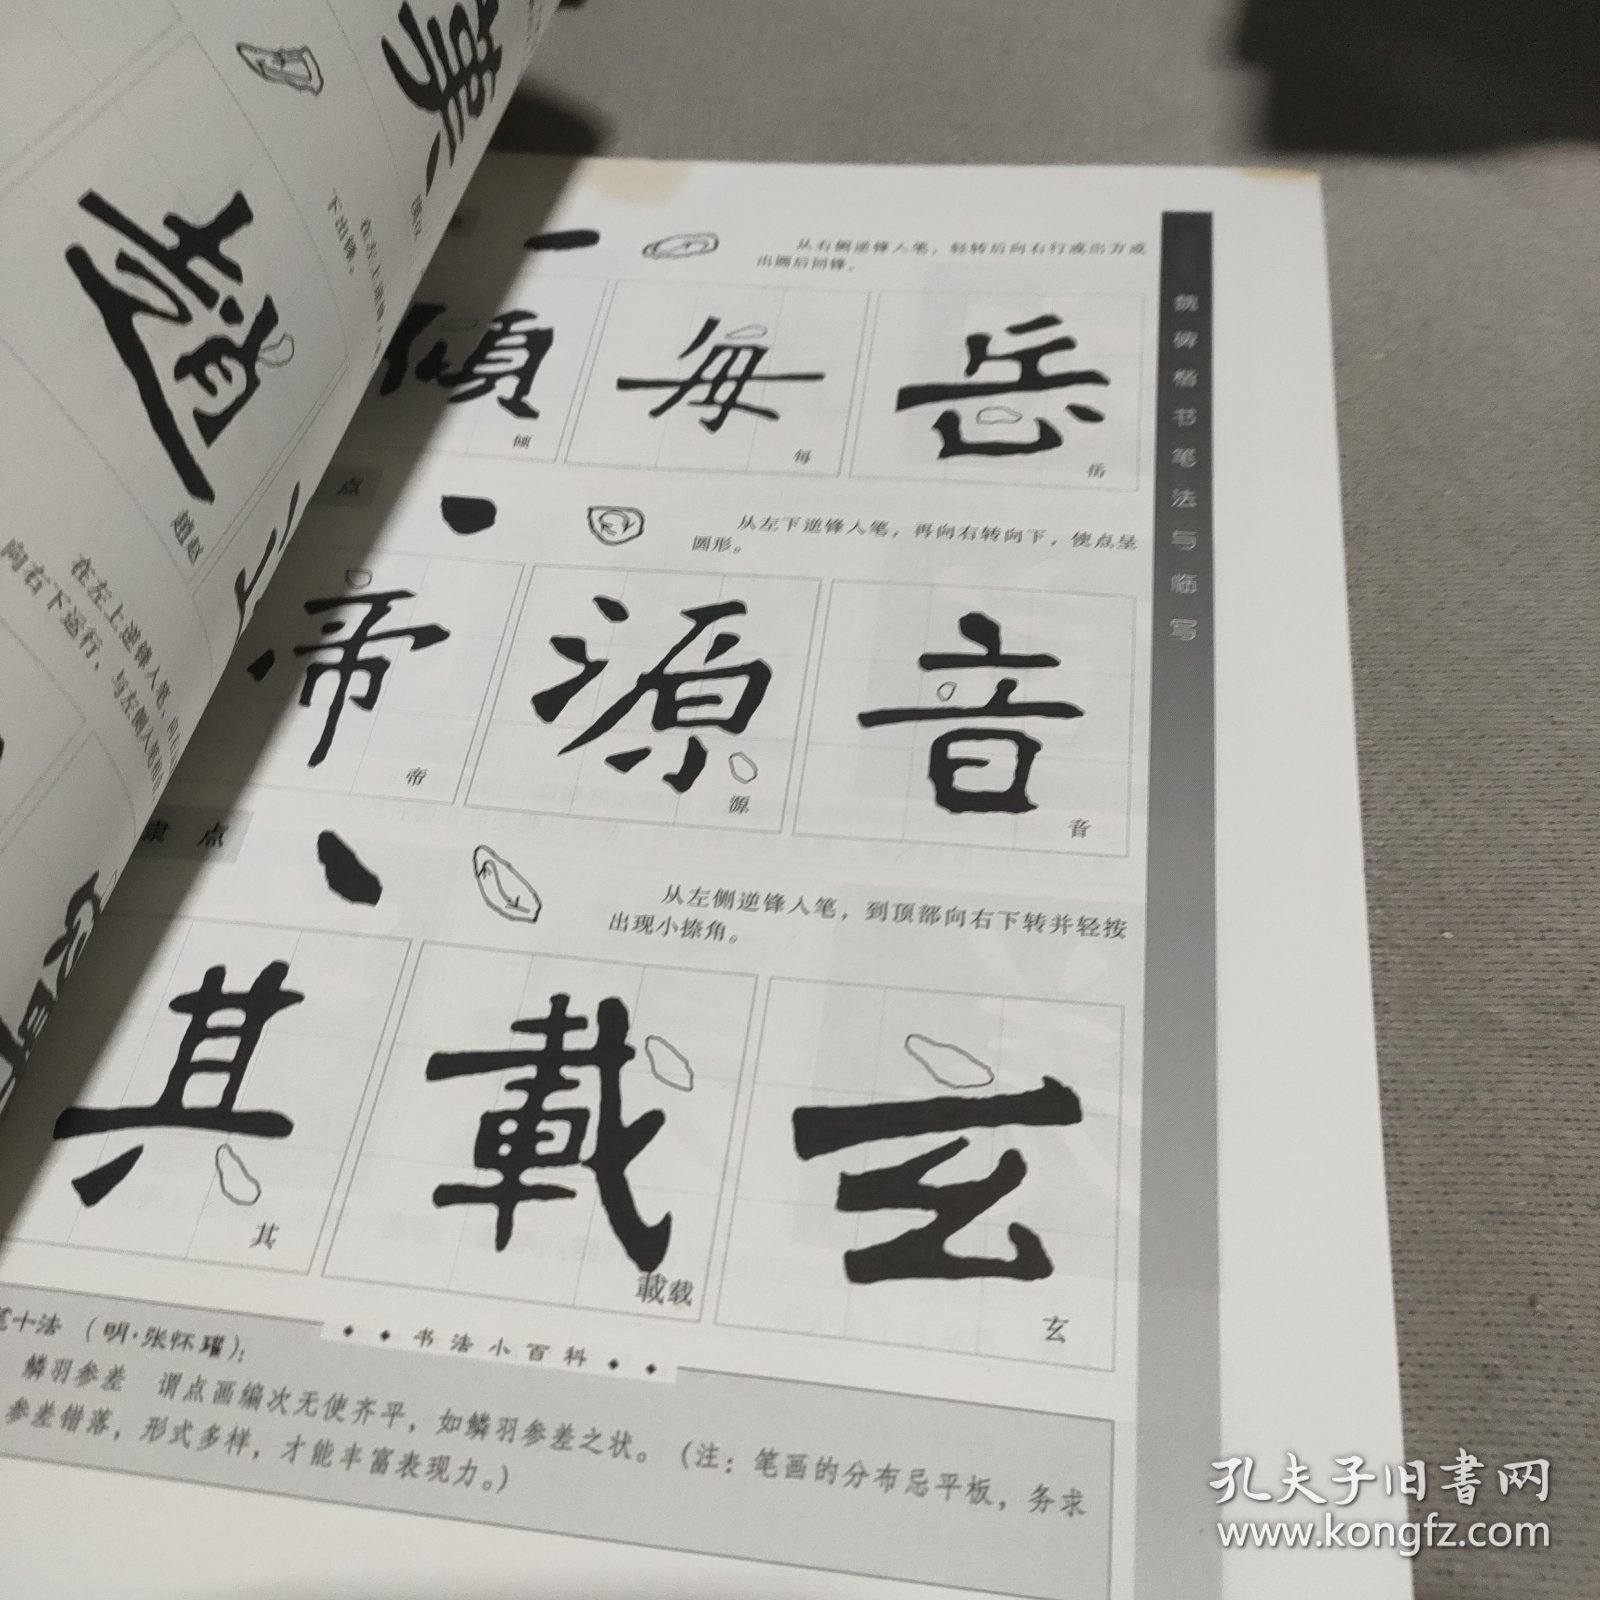 魏碑楷书笔法与临写
从右侧逆锋入笔，轻转后向右行或出方或
出圆后回锋。
傾 每 岳
倾 每 岳
点
从左下逆锋入笔，再向右转向下，使点呈
圆形。
帝 源 音
帝 源 音
点
从左侧逆锋入笔，到顶部向右下转并轻按
出现小捺角。
其 載 玄
其 載载 玄
书法小百科
笔十法（明·张怀瓘）：
鳞羽参差 谓点画编次无使齐平，如鳞羽参差之状。（注：笔画的分布忌平板，务求
参差错落，形式多样，才能丰富表现力。）
下出锋。
趙
趙赵
在左上逆锋入笔，向右
向右下运行，与左侧入笔
孔夫子旧书网
www.kongfz.com